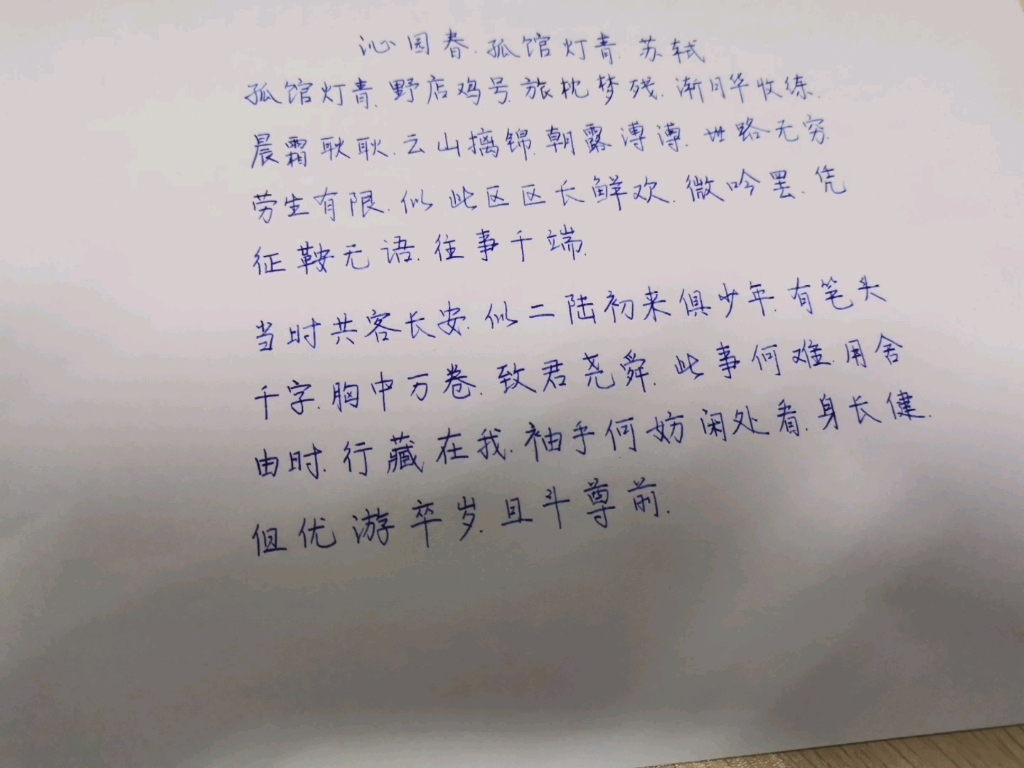 沁园春.孤馆灯青.苏轼
孤馆灯青.野店鸡号.旅枕梦残.渐月华收练.
晨霜耿耿.云山摛锦.朝露漙漙.世路无穷.
劳生有限.似此区区长鲜欢.微吟罢.凭
征鞍无语.往事千端.
当时共客长安.似二陆初来俱少年.有笔头
千字.胸中万卷.致君尧舜.此事何难.用舍
由时.行藏在我.袖手何妨闲处看.身长健.
但优游卒岁.且斗尊前.